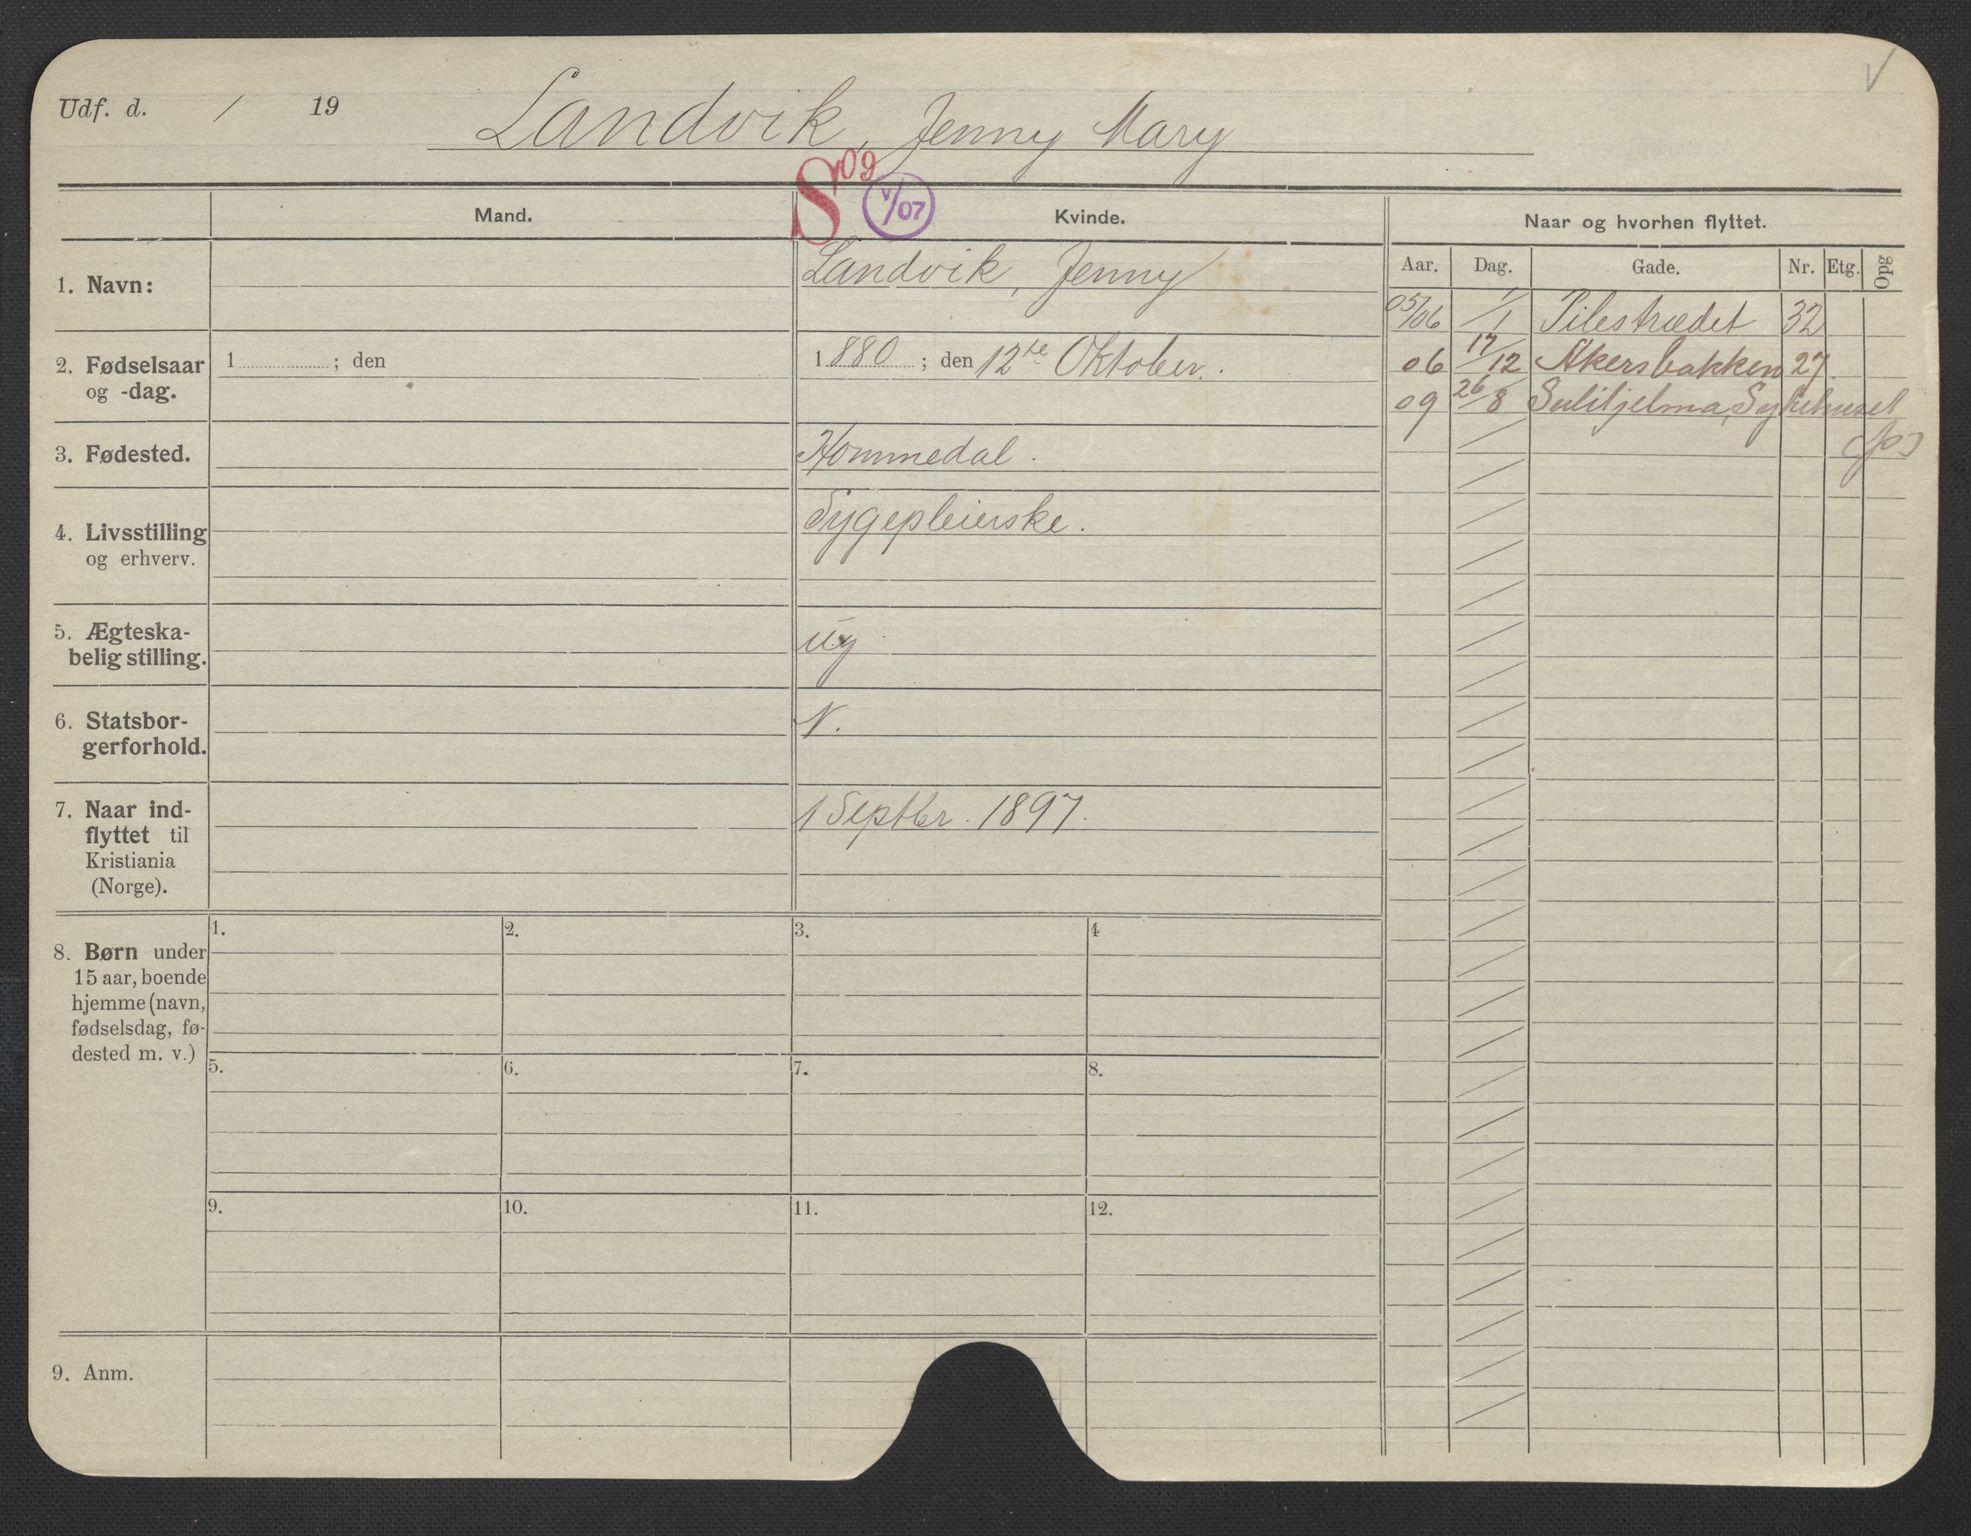 Udf. d. / 19
Landvik, Jenny Mary
S 09
V/07
Mand.
Kvinde.
Naar og hvorhen flyttet.
Aar. Dag. Gade. Nr. Etg. Opg
1. Navn:
Landvik, Jenny
05/06 1/1 Pilestrædet 32
2. Fødselsaar
og -dag.
1 ; den
1880 ; den 12te Oktober.
06 17/12 Akersbakken 27.
09 26/8 Sulitjelma, Sykehuset
3. Fødested.
Hommedal.
4. Livsstilling
og erhverv.
Sygepleierske.
5. Ægteska-
belig stilling.
ug
6. Statsbor-
gerforhold.
N.
7. Naar ind-
flyttet til
Kristiania
(Norge).
1 Septbr. 1897.
8. Børn under
15 aar, boende
hjemme (navn,
fødselsdag, fø-
dested m. v.)
1. 2. 3. 4
5. 6. 7. 8.
9. 10. 11. 12.
9. Anm.